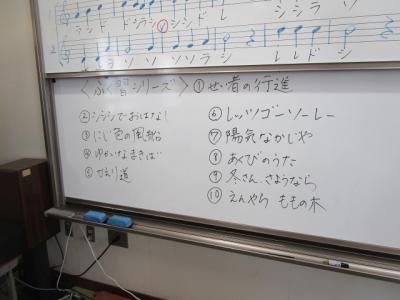 ラシドラシシシドレ
シシラソ
レレドシ
<ふく習シリーズ> ①せい者の行進
②シシシでおはなし
③にじ色の風船
④ゆかいなまきば
⑤かえり道
⑥レッツゴーソーレー
⑦陽気なかじや
⑧あくびのうた
⑨冬さん、さようなら
⑩えんやら ももの木